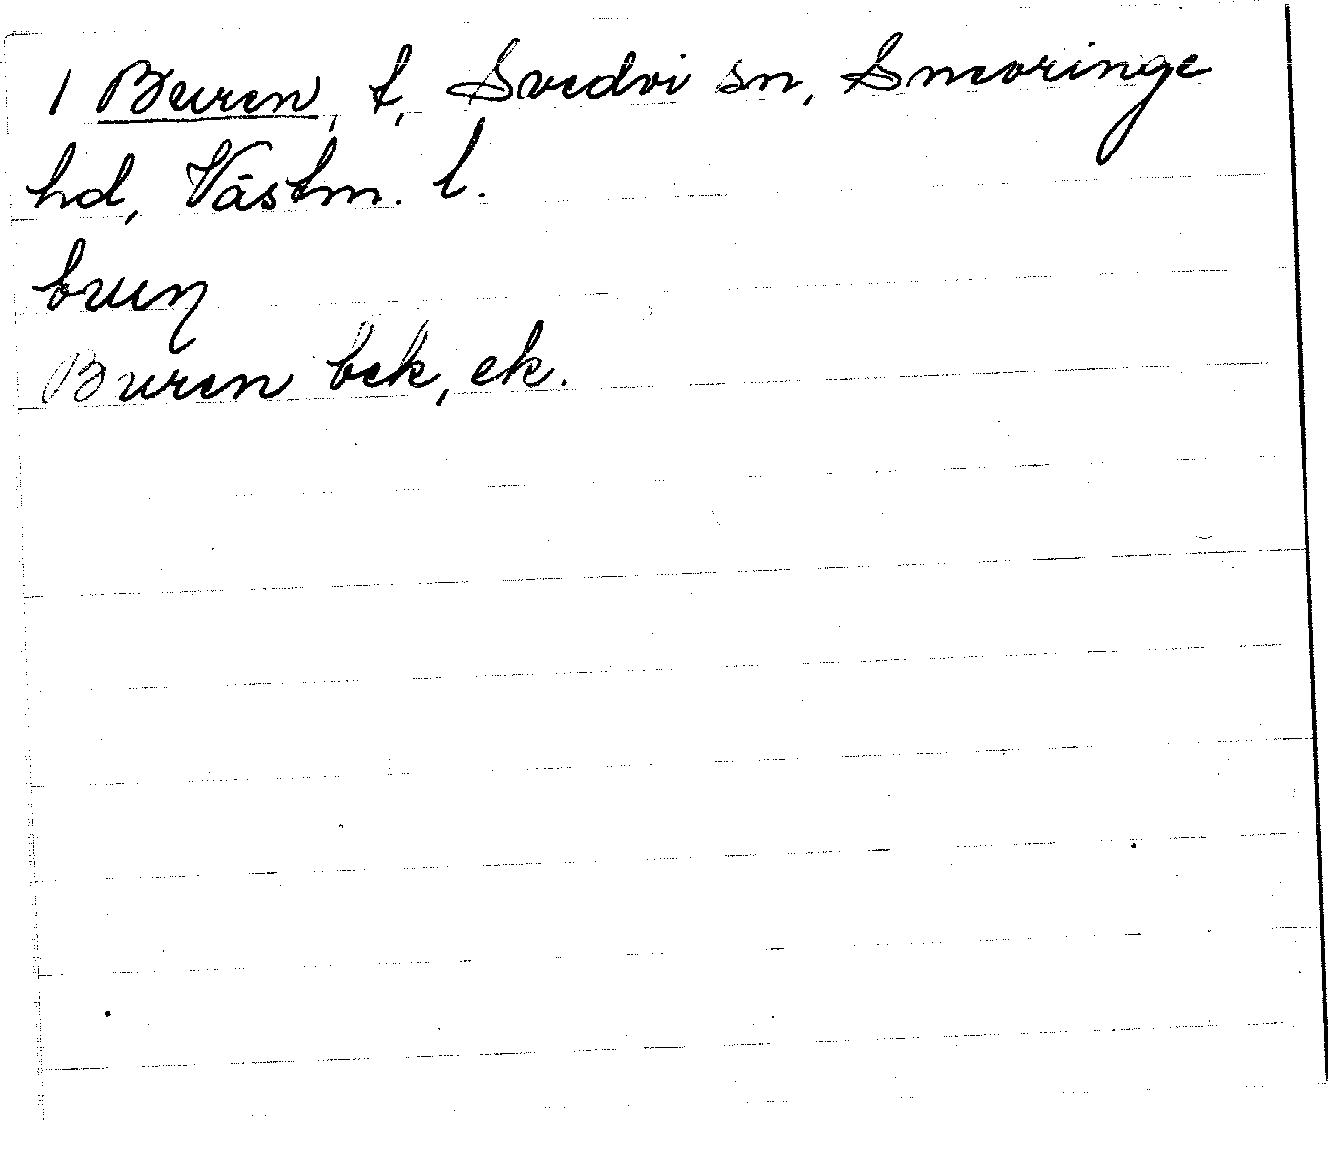 1 Buren, t, Svedvi sn, Snevringe
hd, Västm. l.
Buren bek, ek.